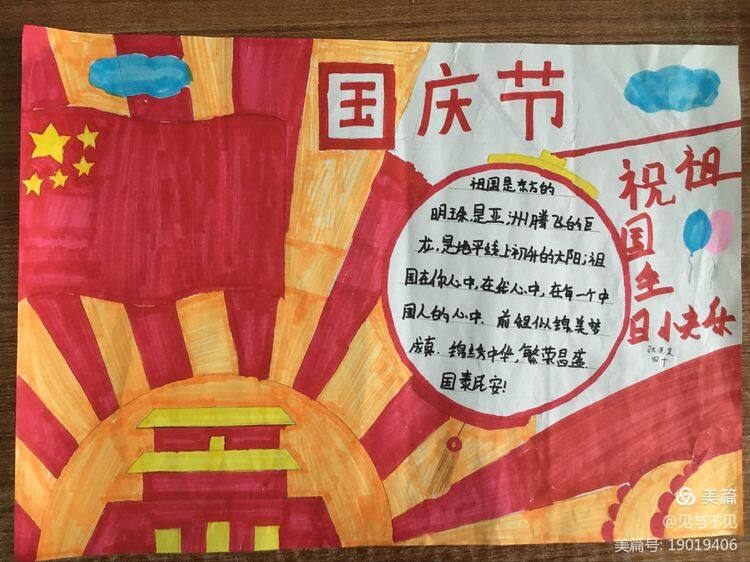 国庆节
祖国是东方的
明珠,是亚洲腾飞的巨
龙,是地平线上初升的太阳;祖
国在你心中,在我心中,在每一个中
国人的心中.前程似锦,美梦
成真.锦绣中华,繁荣昌盛
国泰民安!
祝祖
国生
日快乐
美篇
@见与不见
美篇号: 19019406